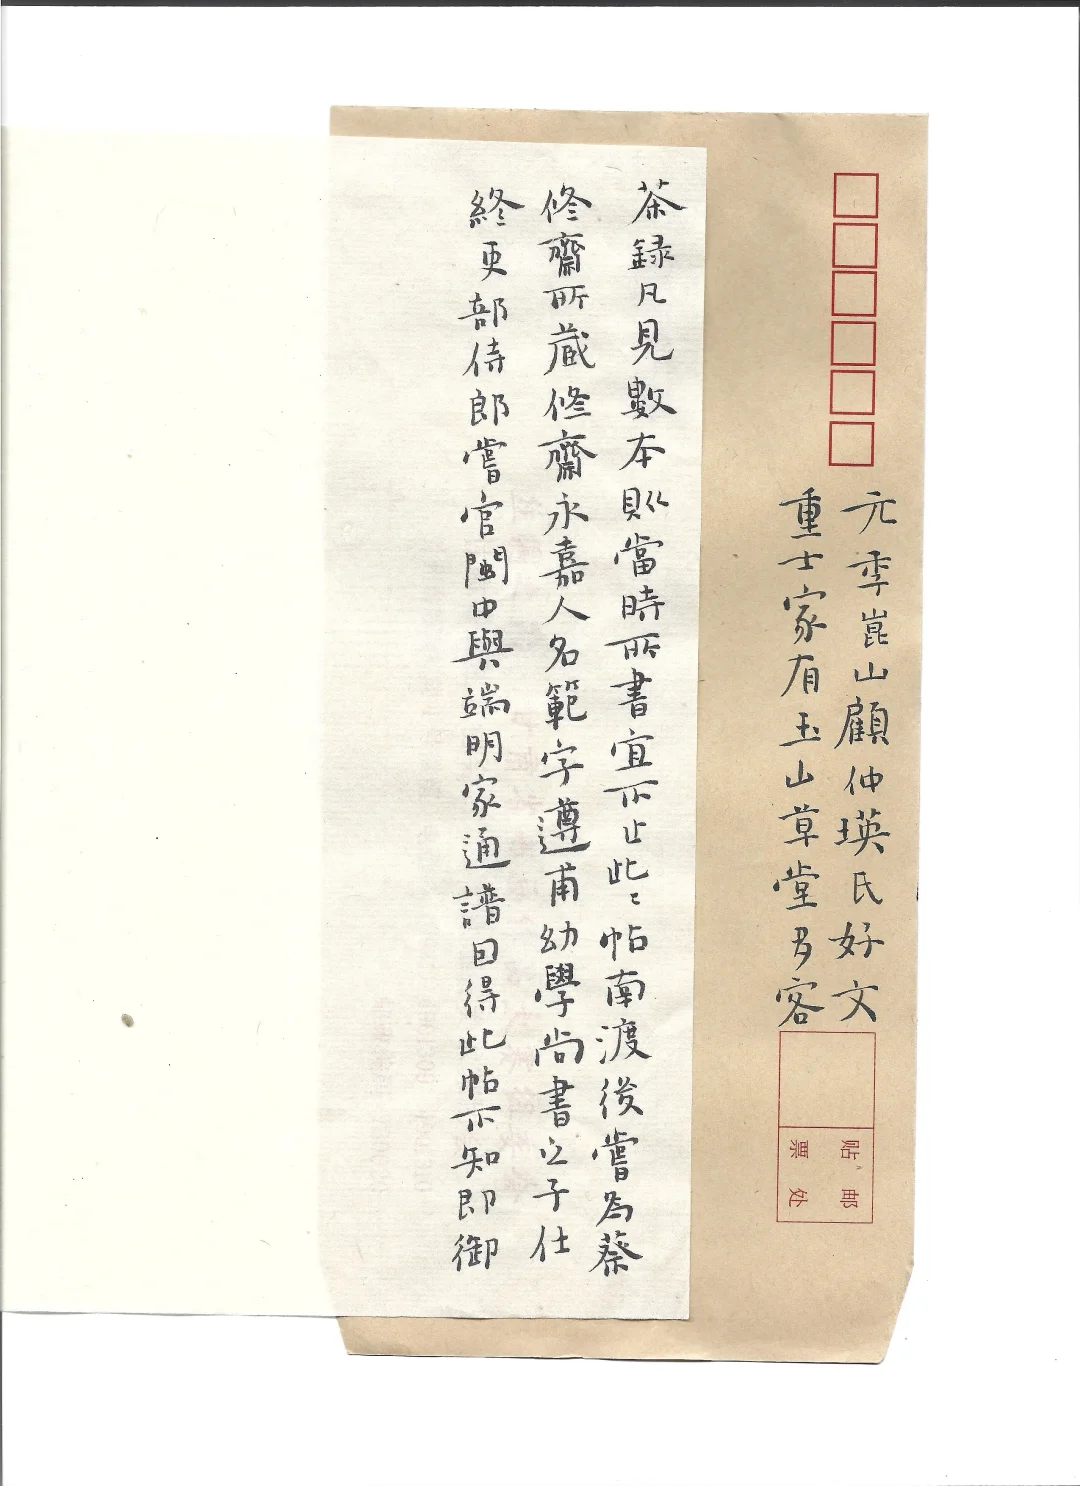 元季崑山顧仲瑛氏好文
重士家有玉山草堂多客
贴邮
票处
茶録凡見數本則當時所書宜不止此〻帖南渡後嘗為蔡
修齋所藏修齋永嘉人名範字遵甫幼學尚書之子仕
終吏部侍郎嘗官閩中與端明家通譜因得此帖不知即御